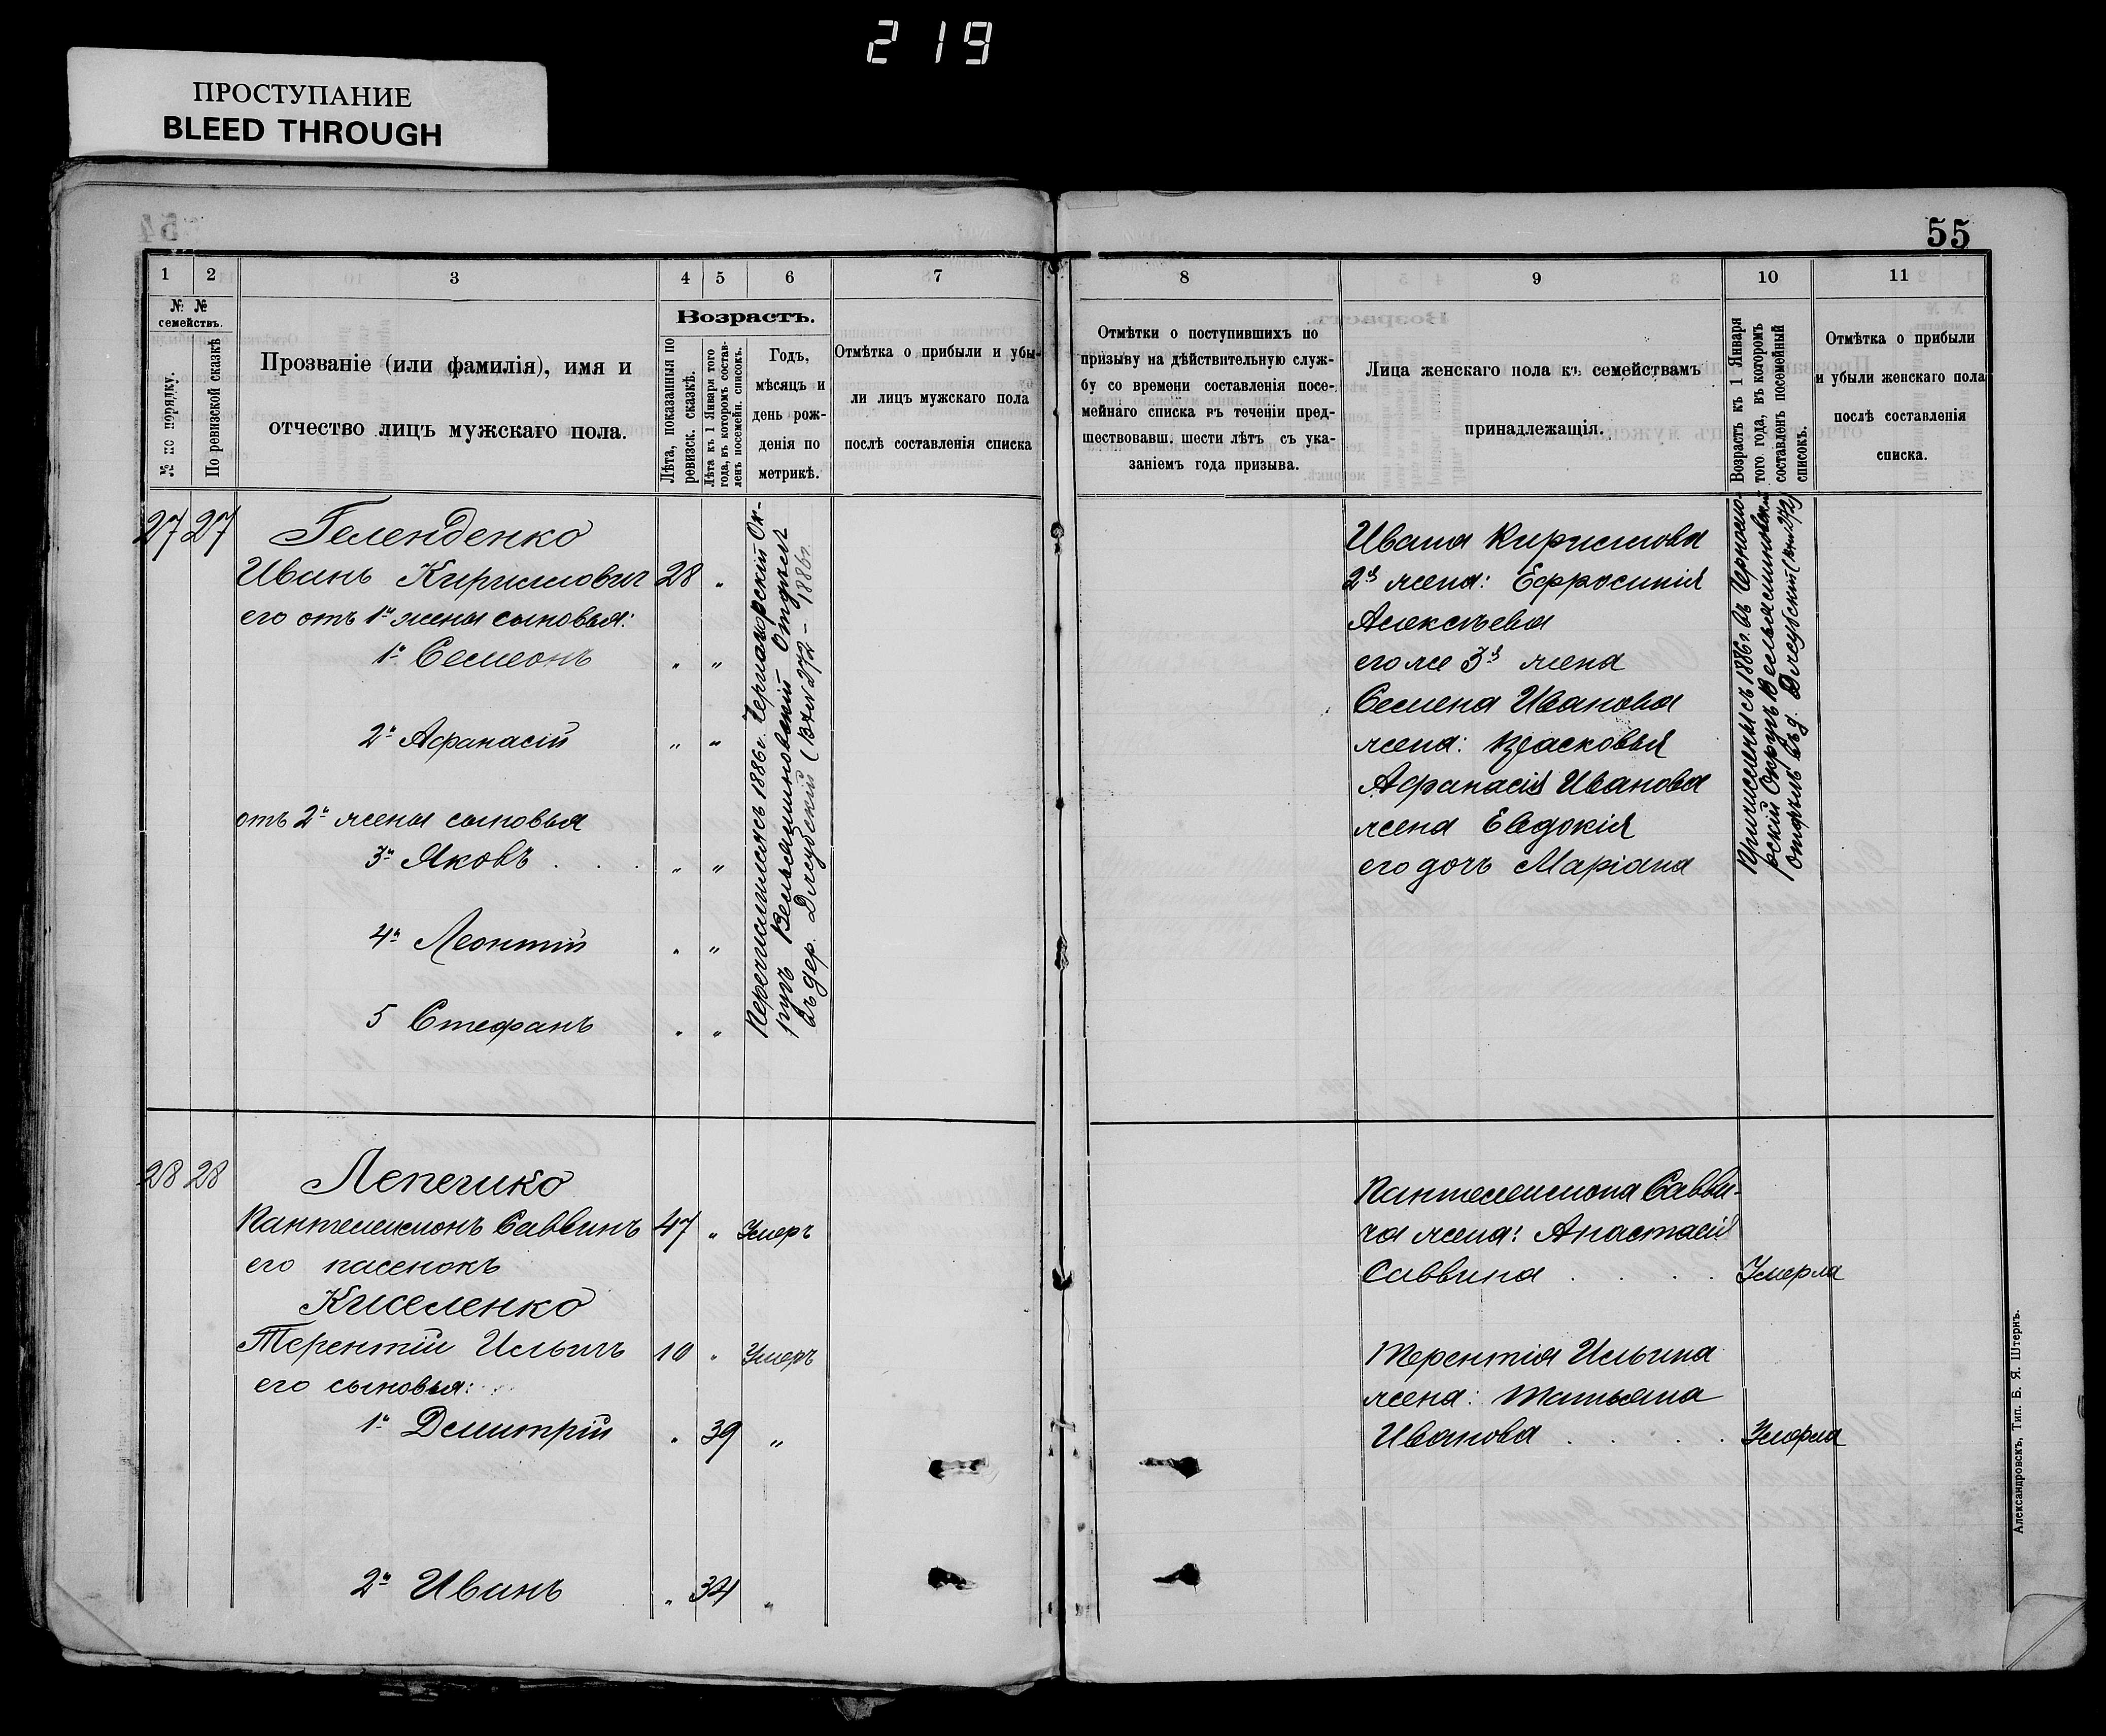 219
ПРОСТУПАНИЕ
BLEED THROUGH
55
1 2 3 4 5 6 7
№ №
семействъ.
№ по порядку.
По ревизской сказкѣ
Прозваніе (или фамилія), имя и
отчество лицъ мужскаго пола.
Возрастъ.
Лѣта, показанныя по
ревизск. сказкѣ.
Лѣта къ 1 Января того
года, въ которомъ состав-
ленъ посемейн. списокъ.
Годъ,
мѣсяцъ и
день рож-
денія по
метрикѣ.
Отмѣтка о прибыли и убы-
ли лицъ мужскаго пола
послѣ составленія списка
27 27 Геленденко
Иванъ Кирилловичъ 28 "
его отъ 1й жены сыновья:
1й Семеонъ " "
2й Афанасій " "
отъ 2й жены сыновья
3й Яковъ . . . " "
4й Леонтій " "
5 Стефанъ " "
Перечислились 1886г. Черноморскій Ок-
ругъ Вельяминовскій Отдѣлъ
въ дер. Джубский 1886г.
28 28 Лепечико
Пантелеимонъ Саввинъ 47 " Умеръ
его пасенокъ
Киселенко
Терентій Ильичъ 10 " Умеръ
его сыновья:
1й Дмитрій " 39 "
2й Иванъ " 34 "
8 9 10 11
Отмѣтки о поступившихъ по
призыву на дѣйствительную служ-
бу со времени составленія посе-
мейнаго списка въ теченіи пред-
шествовавш. шести лѣтъ съ ука-
заніемъ года призыва.
Лица женскаго пола къ семействамъ
принадлежащія.
Возрастъ къ 1 Января
того года, въ которомъ
составленъ посемейный
списокъ.
Отмѣтка о прибыли
и убыли женскаго пола
послѣ составленія
списка.
Ивана Кирилова
2я жена: Ефросинія
Алексѣева
его же 3я жена
Семена Иванова
жена: Прасковья
Афанасія Иванова
жена Евдокія
его дочь Маріана
Причислены съ 1886г. въ Черномо-
рскій Округъ Вельяминовскій
отдѣлъ въ д. Джубский
Пантелеимона Савви-
ча жена: Анастасія
Саввина . . . . Умерла
Терентія Ильина
жена: Татьяна
Иванова . . . . Умерла
Александровскъ, Тип. Б. Я. Штернъ.